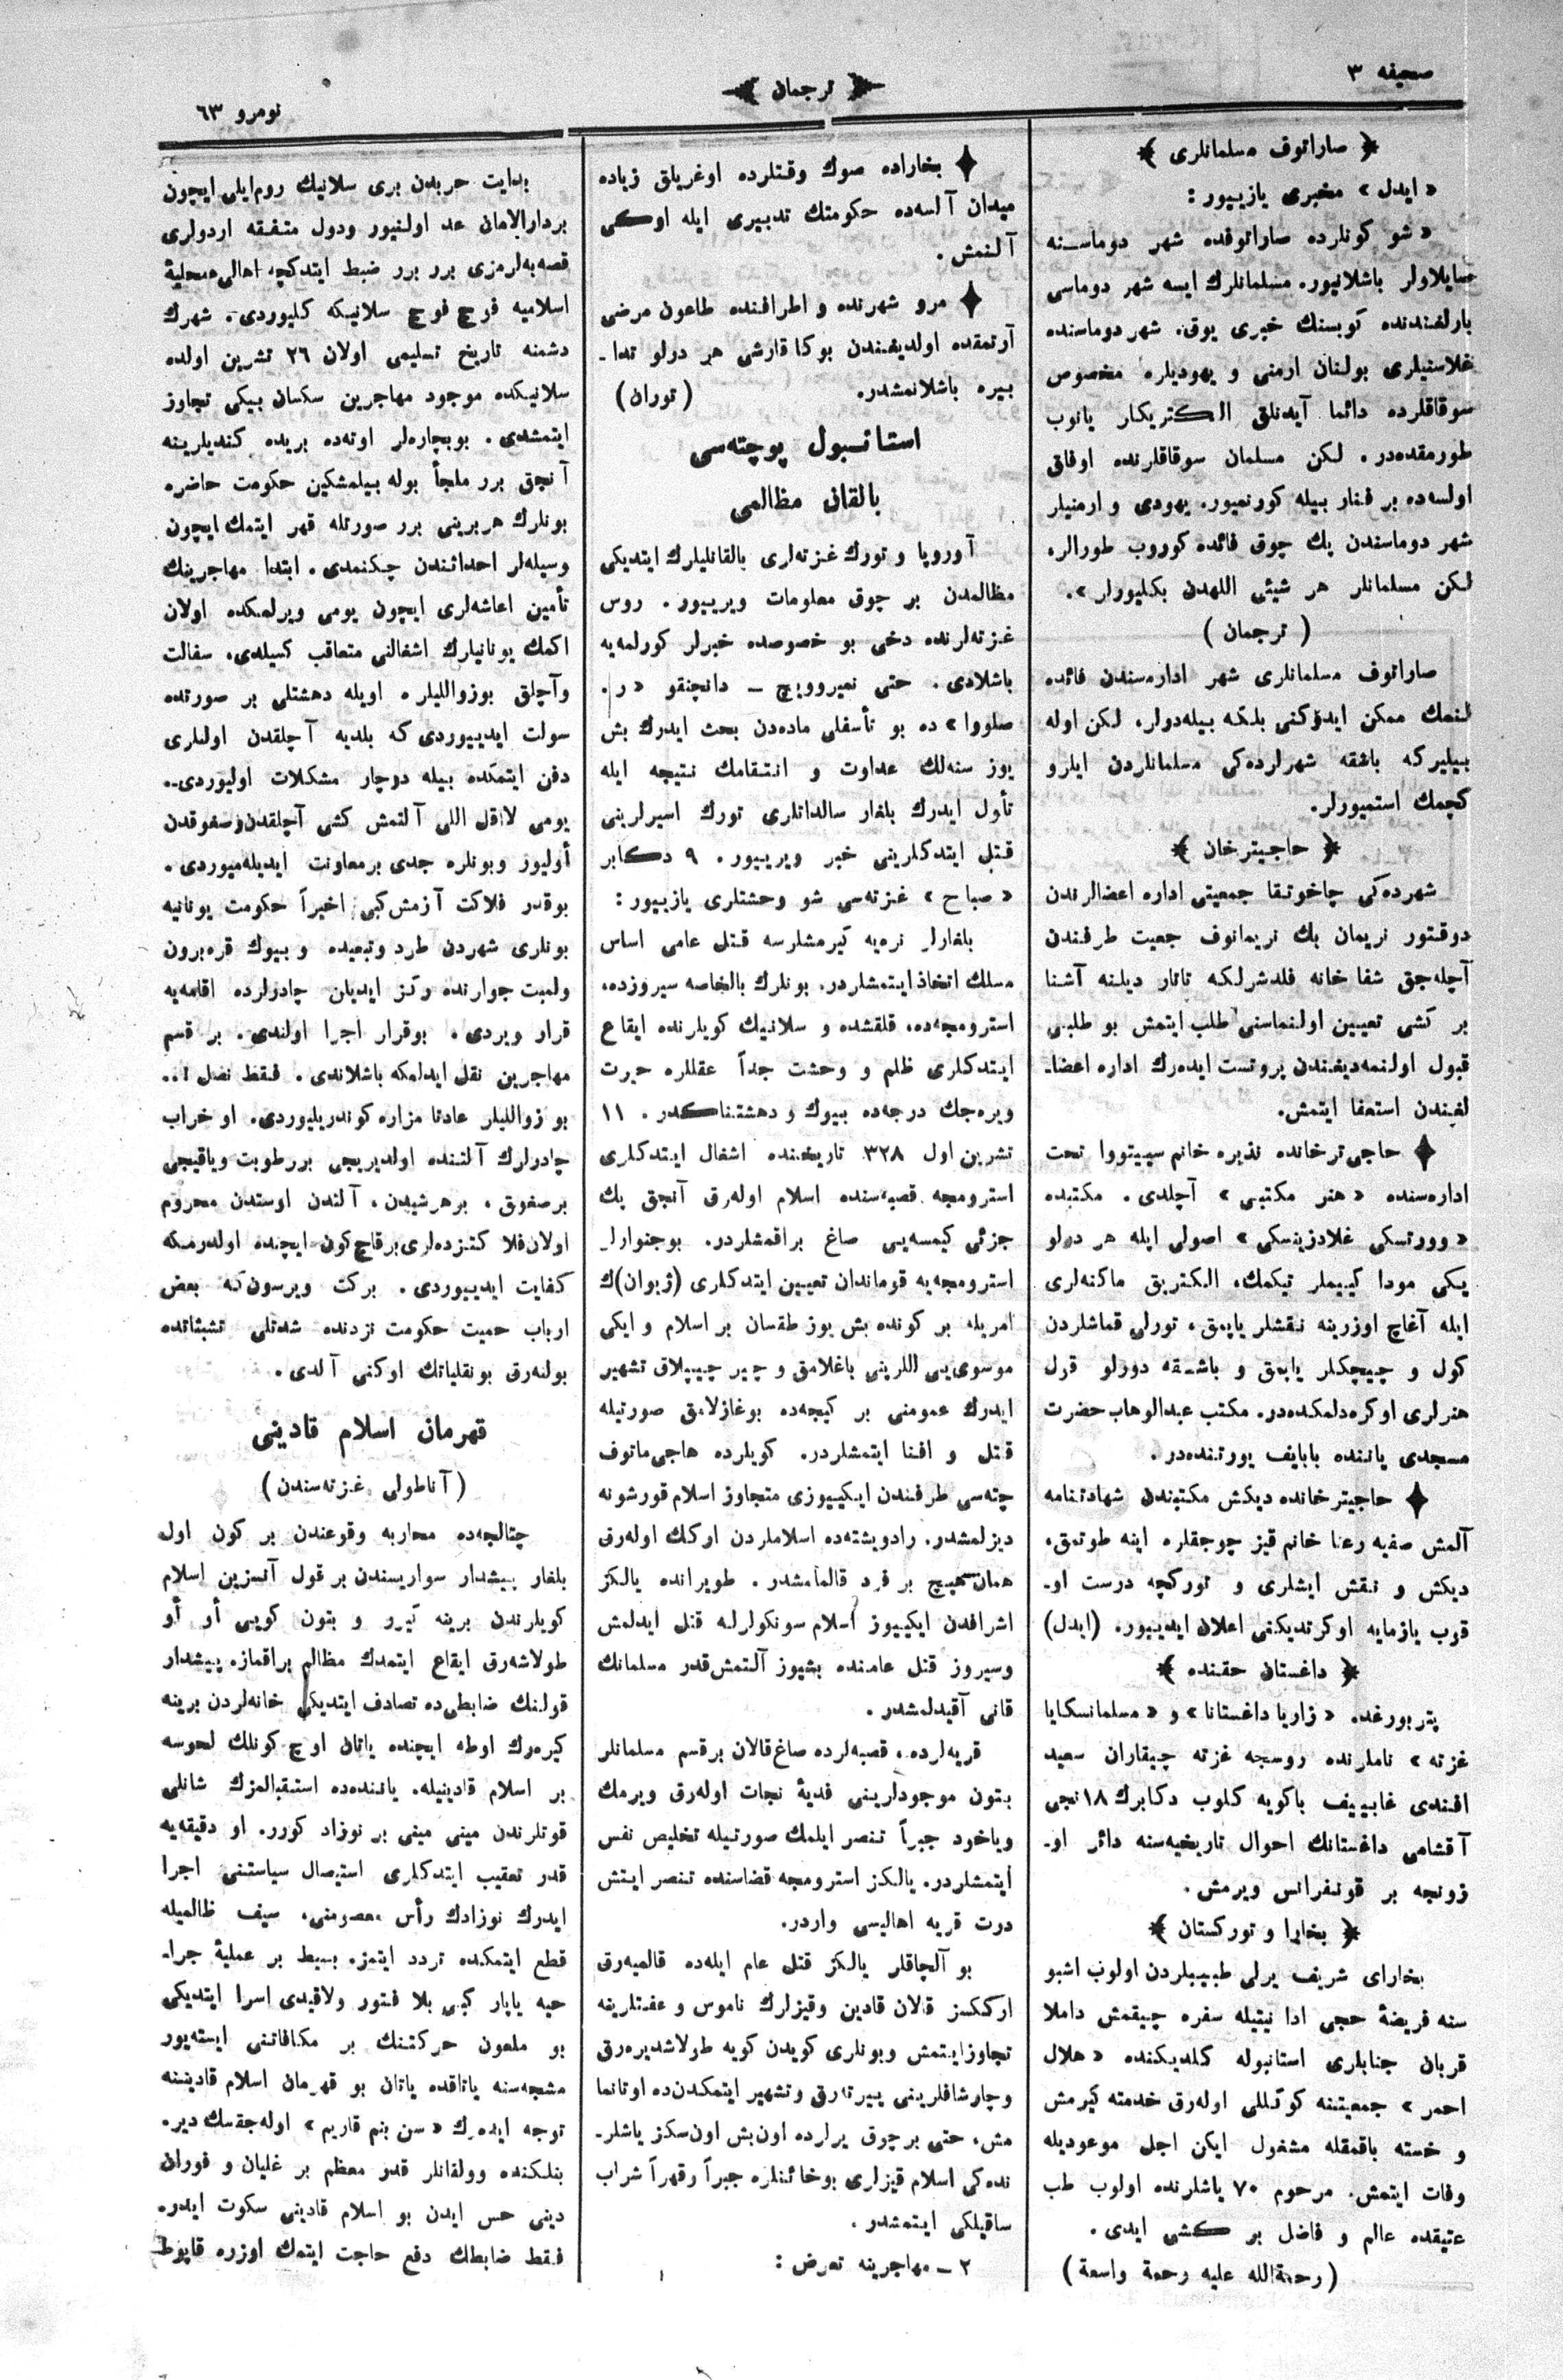 صحیفه ۳
ترجمان
نومرو ٦٣
صاراتوف مسلمانلری
« ایدل » مخبری یازییور :
« شو كونلرده صاراتوفده شهر دوماسنه
صایلاولر باشلانیور. مسلمانلرك ایسه شهر دوماسی
بارلغندنده كوبسنك خبری یوق. شهر دوماسنده
غلاسنیلری بولنان ارمنی و یهودیلره مخصوص
سوقاقلرده دائما آیدنلق الكتریكار یانوب
طورمقدهدر. لكن مسلمان سوقاقلرنده اوفاق
اولسهده بر فنار بیله كورنمیور. یهودی و ارمنیلر
شهر دوماسندن پك چوق فائده كوروب طورالر.
لكن مسلمانلر هر شیئی اللهدن بكلیورلر ».
( ترجمان )
صاراتوف مسلمانلری شهر ادارهسندن فائده
لنمك ممكن ایدوكنی بلكه بیلهدولر. لكن اوله
بیلیركه باشقه شهرلردهكی مسلمانلردن ایلرو
كچمك استمیورلر.
حاجیترخان
شهردهكی چاخوتقا جمعیتی اداره اعضالرندن
دوقتور نریمان بك نریمانوف جمعیت طرفندن
آچلهجق شفا خانه فلدشرلكه تاتار دیلنه آشنا
بر كشی تعیین اولنماسنی طلب ایتمش بو طلبی
قبول اولنمهدیغندن پروتست ایدهرك اداره اعضا-
لغندن استعفا ایتمش.
حاجی ترخانده نذیره خانم سیپیتووا تحت
ادارهسنده « هنر مكتبی » آچلدی. مكتبده
« وورتسكی غلادزینسكی » اصولی ایله هر دولو
یكی مودا كییملر تیكمك، الكتریق ماكنهلری
ایله آغاچ اوزرینه نقشلر یاپمق، تورلی قماشلردن
كول و چیچكلر یاپمق و باشقه دورلو قول
هنرلری اوكرهدلمكدهدر. مكتب عبدالوهاب حضرت
مسجدی یاننده بابایف یورتندهدر.
حاجیترخانده دیكش مكتبندن شهادتنامه
آلمش صفیه رعنا خانم قیز چوجقلره اینه طوتمق،
دیكش و نقش ایشلری و توركچه درست او-
قوب یازمایه اوكرتدیكنی اعلان ایدییور. (ایدل)
داغستان حقنده
پتربورغده « زاریا داغستانا » و « مسلمانسكایا
غزته » ناملرنده روسجه غزته چیقاران سعید
افندی غابییف باكویه كلوب دكابرك ۱۸ نجی
آقشامی داغستانك احوال تاریخیهسنه دائر او-
زونجه بر قونفرانس ویرمش.
بخارا و توركستان
بخارای شریف یرلی طبیبلردن اولوب اشبو
سنه فریضهٔ حجی ادا نیتیله سفره چیقمش داملا
قربان جنابلری استانبوله كلدیكنده « هلال
احمر » جمعیتنه كوكللی اولهرق خدمته كیرمش
و خسته باقمقله مشغول ایكن اجل موعودیله
وفات ایتمش. مرحوم ۷۰ یاشلرنده اولوب طب
عتیقده عالم و فاضل بر كشی ایدی.
(رحمةالله علیه رحمة واسعة)
بخاراده صوك وقتلرده اوغریلق زیاده
میدان آلسهده حكومتك تدبیری ایله اوكی
آلنمش.
مرو شهرنده و اطرافنده طاعون مرضی
آرتمقده اولدیغندن بوكا قارشی هر درلو تدا-
بیره باشلانمشدر. (توران)
استانبول پوچتهسی
بالقان مظالمی
آوروپا و تورك غزتهلری بالقانلیلرك ایتدیكی
مظالمدن بر چوق معلومات ویرییور. روس
غزتهلرنده دخی بو خصوصده خبرلر كورلمهیه
باشلادی. حتی نمیروویچ – دانچنقو « ر.
صلووا » ده بو تأسفلی مادهدن بحث ایدرك بش
یوز سنهلك عداوت و انتقامك نتیجه ایله
تأول ایدرك بلغار سالداتلری تورك اسیرلرینی
قتل ایتدكلرینی خبر ویرییور. ۹ دكابر
« صباح » غزتهسی شو وحشتلری یازییور :
بلغارلر نرهیه كیرمشلرسه قتل عامی اساس
مسلك اتخاذ ایتمشلردر. بونلرك بالخاصه سیروزده،
استرومجهده، قلقشده و سلانیك كویلرنده ایقاع
ایتدكلری ظلم و وحشت جداً عقللره حیرت
ویرهجك درجهده بیوك و دهشتناكدر. ۱۱
تشرین اول ۳۲۸ تاریخنده اشغال ایتدكلری
استرومجه قصبهسنده اسلام اولهرق آنجق پك
جزئی كیمسهیی صاغ براقمشلردر. بوجنوارلر
استرومجهیه قوماندان تعیین ایتدكلری (ژیوان)ك
امریله بر كونده بش یوز طقسان بر اسلام و ایكی
موسوییی اللرینی باغلامق و چیر چیپلاق تشهیر
ایدرك عمومنی بر كیجهده بوغازلامق صورتیله
قتل و افنا ایتمشلردر. كویلرده هاجی ماتوف
چتهسی طرفندن ایكییوزی متجاوز اسلام قورشونه
دیزلمشدر. رادویشتهده اسلاملردن اركك اولهرق
همان هیچ بر فرد قالمامشدر. طویرانده یالكز
اشرافدن ایكییوز اسلام سونكولرله قتل ایدلمش
وسیروز قتل عامنده بشیوز آلتمش قدر مسلمانك
قانی آقیدلمشدر.
قریهلرده، قصبهلرده صاغ قالان بر قسم مسلمانلر
بتون موجودلرینی فدیهٔ نجات اولهرق ویرمك
ویاخود جبراً تنصر ایلمك صورتیله تخلیص نفس
ایتمشلردر. یالكز استرومجه قضاسنده تنصر ایتش
درت قریه اهالیسی واردر.
بو آلچاقلر یالكز قتل عام ایلهده قالمیهرق
اركسز قالان قادین وقیزلرك ناموس و عفتلرینه
تجاوز ایتمش وبونلری كویدن كویه طولاشدیرهرق
وچارشافلرینی ییرتهرق وتشهیر ایتمكدنده اوتانما
مش، حتی بر چوق یرلرده اون بش اون سكز یاشلر-
ندهكی اسلام قیزلری بوخائنلره جبراً وقهراً شراب
ساقیلكی ایتمشدر.
۲ – مهاجرینه تعرض :
بدایت حربدن بری سلانیك روم ایلی ایچون
بردارالامان عد اولنیور ودول متفقه اردولری
قصبهلرمزی برر برر ضبط ایتدكچه اهالی محلیهٔ
اسلامیه فوج فوج سلانیكه كلیوردی. شهرك
دشمنه تاریخ تسلیمی اولان ۲٦ تشرین اولده
سلانیكده موجود مهاجرین سكسان بیكی تجاوز
ایتمشدی. بو بیچارهلر اوتهده بریده كندیلرینه
آنجق برر ملجأ بوله بیلمشكین حكومت حاضره
بونلرك هربرینی برر صورتله قهر ایتمك ایچون
وسیلهلر احداثندن چكنمدی. ابتدا مهاجرینك
تأمین اعاشهلری ایچون یومی ویرلمكده اولان
اكمك یونانیلرك اشغالنی متعاقب كسیلدی. سفالت
وآچلق بوزواللیلره اویله دهشتلی بر صورتده
سولت ایدییوردی كه بلدیه آچلقدن اولنلری
دفن ایتمكده بیله دوچار مشكلات اولیوردی.
یومی لااقل اللی آلتمش كشی آچلقدن وصغوقدن
أولیور وبونلره جدی بر معاونت ایدیلهمیوردی.
بوقدر فلاكت آزمش كبی اخیراً حكومت یونانیه
بونلری شهردن طرد وتبعیده و بیوك قرهبرون
ولمبت جوارنده ركز ایدیلن چادرلرده اقامهیه
قرار ویردی. بوقرار اجرا اولندی. بر قسم
مهاجرین نقل ایدلمكه باشلاندی. فقط نصل !..
بو زواللیلر عادتا مزاره كوندریلیوردی. او خراب
چادرلرك آلتنده اولدیریجی بررطوبت ویاقیجی
برصغوق، برهرشیدن، آلتدن اوستدن محروم
اولان فلا كتزدهلری برقاچ كون ایچنده اولدرمكه
كفایت ایدییوردی. بركت ویرسونكه بعض
ارباب حمیت حكومت نزدنده شدتلی تشبثاتده
بولنهرق بونقلیاتك اوكنی آلدی.
قهرمان اسلام قادینی
(آناطولی غزتهسندن)
چتالجهده محاربه وقوعندن بر كون اول
بلغار پیشدار سواریسندن بر قول آنسزین اسلام
كویلرندن برینه كیرو و بتون كویی أو أو
طولاشهرق ایقاع ایتمدك مظالم براقماز. پیشدار
قولنك ضابطیده تصادف ایتدیكی خانهلردن برینه
كیرهرك اوطه ایچنده یاتان اوچ كونلك لحوسه
بر اسلام قادینیله. یانندهده استقبالمزك شانلی
قوتلرندن مینی مینی بر نوزاد كورر. او دقیقهیه
قدر تعقیب ایتدكلری استیصال سیاستنی اجرا
ایدرك نوزادك رأس معصومنی، سیف ظالمیله
قطع ایتمكده تردد ایتمز. بسیط بر عملیهٔ جرا-
حیه یاپار كبی بلا فتور ولاقیدی اسرا ایتدیكی
بو ملعون حركتنك بر مكافاتنی ایستهیور
مشجهسنه یاتاقده یاتان بو قهرمان اسلام قادیننه
توجه ایدهرك « سن بنم قاریم » اولهجقسك دیر.
بنلكنده وولقانلر قدر معظم بر غلیان و فوران
دینی حس ایدن بو اسلام قادینی سكوت ایدر.
فقط ضابطك دفع حاجت ایتمك اوزره قاپوط